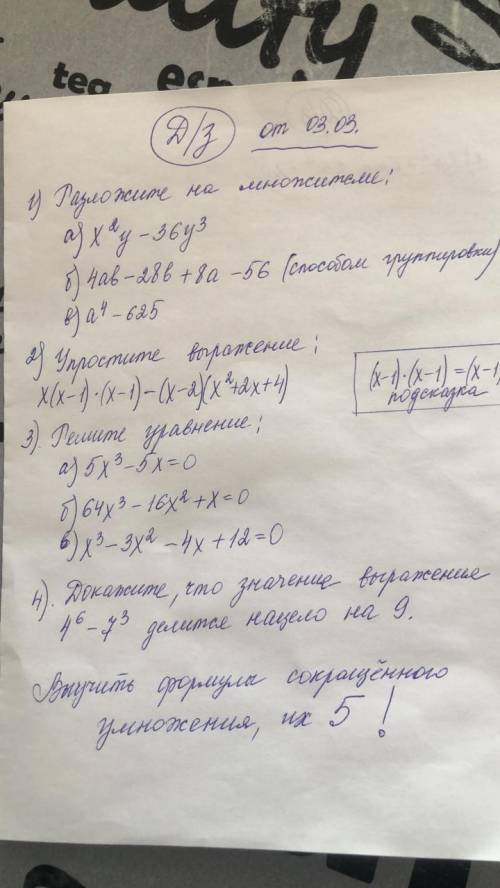 tea
Д/з от 03.03.
1) Разложите на множители:
а) x²y - 36y³
б) 4ab - 28b + 8a - 56 (способом группировки)
в) a⁴ - 625
2) Упростите выражение:
x(x-1)·(x-1) - (x-2)(x²+2x+4)
(x-1)·(x-1) = (x-1)
подсказка
3). Решите уравнение:
а) 5x³ - 5x = 0
б) 64x³ - 16x² + x = 0
в) x³ - 3x² - 4x + 12 = 0
4). Докажите, что значение выражения
4⁶ - 7³ делится нацело на 9.
Выучить формулы сокращённого
умножения, их 5!